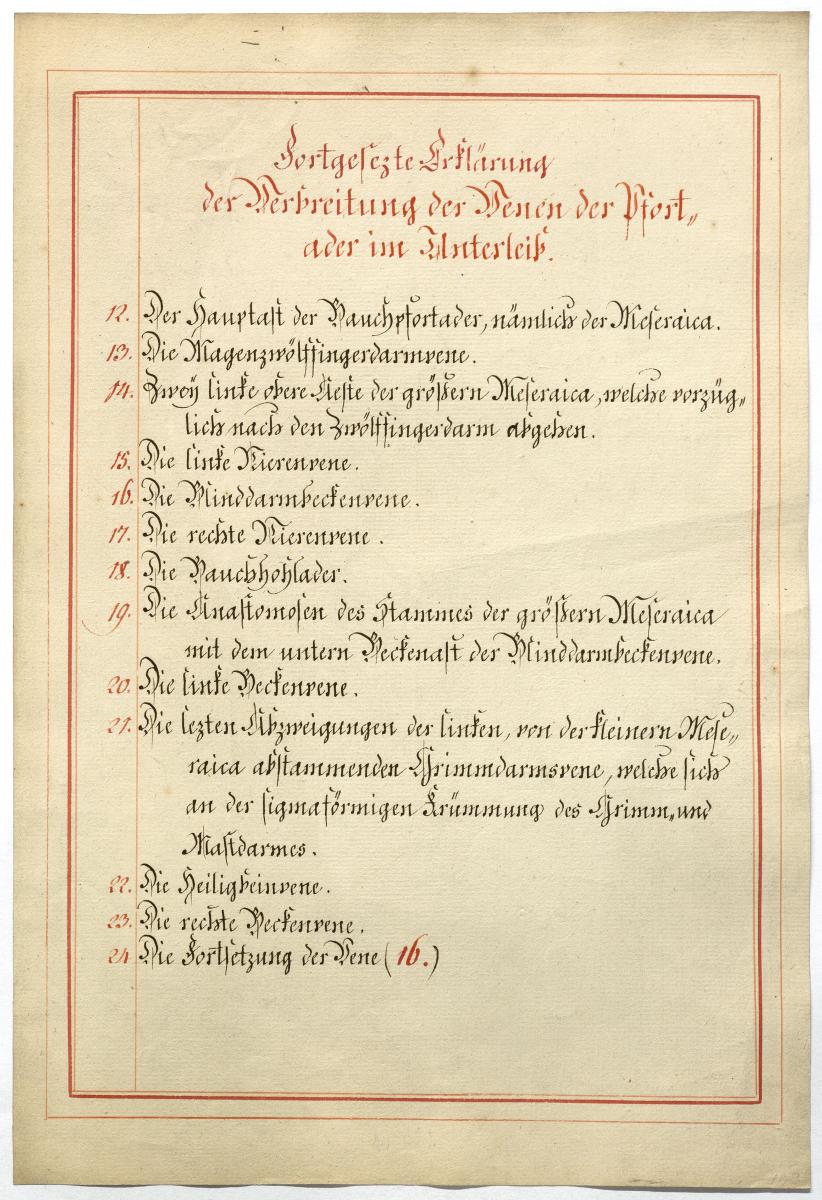 Fortgesezte Erklärung
der Verbreitung der Venen der Pfort„
ader im Unterleib.
12. Der Hauptast der Bauchpfortader, nämlich der Meseraica.
13. Die Magenzwölffingerdarmvene.
14. Zwey linke obere Aeste der größern Meseraica, welche vorzüg„
lich nach den Zwölffingerdarm abgehen.
15. Die linke Nierenvene.
16. Die Blinddarmbeckenvene.
17. Die rechte Nierenvene.
18. Die Bauchhohlader.
19. Die Anastomosen des Stammes der größern Meseraica
mit dem untern Beckenast der Blinddarmbeckenvene.
20. Die linke Beckenvene.
21. Die lezten Abzweigungen der linken, von der kleinern Mese„
raica abstammenden Grimmdarmsvene, welche sich
an der sigmaförmigen Krümmung des Grimm„und
Mastdarmes.
22. Die Heiligbeinvene.
23. Die rechte Beckenvene.
24 Die Fortsetzung der Vene (16.)